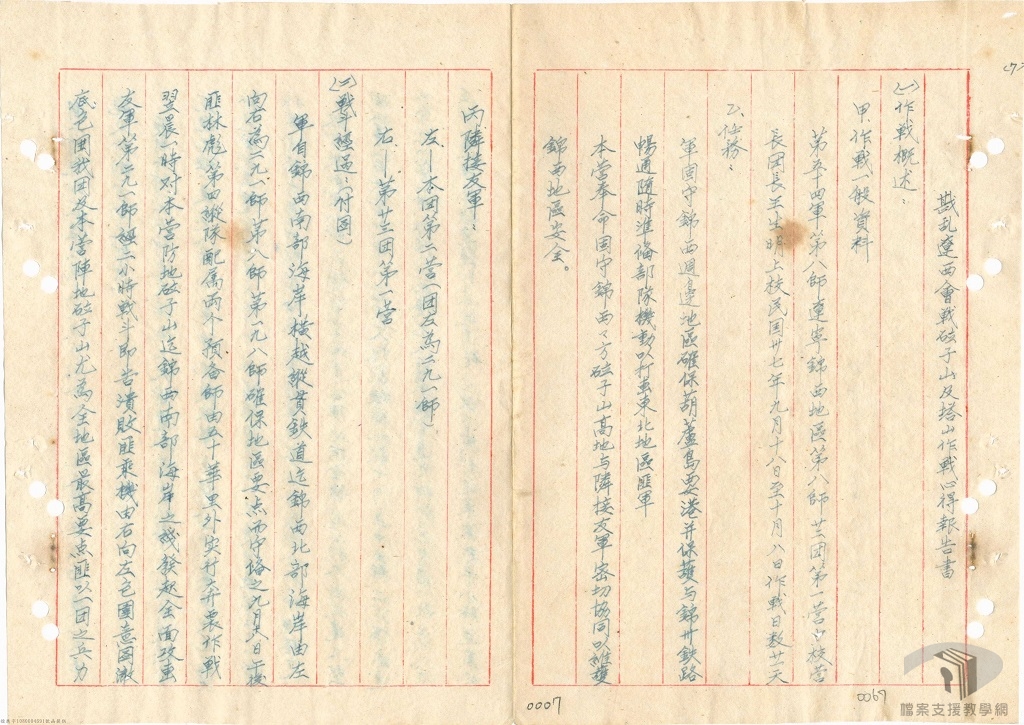 戡乱遼西會戰砬子山及塔山作戰心得報告書
(一)作戰概述：
甲、作戰一般資料
第五十四軍第八師遼寧錦西地區第八師廿三团第一营少校营
長团長王生明上校民国卅七年九月十八日至十月八日作戰日数廿一天
乙、任務：
軍固守錦西週邊地區確保葫蘆島要港并保護与錦州鉄路
暢通随時準備部隊機動以打击東北地區匪軍
本营奉命固守錦西々方砬子山高地与隣接友軍密切協同以維護
錦西地區安全。
丙隣接友軍：
左—本团第二营(团左為二九一師)、
右—第廿二团第一营
(二)戰斗經過：(付圖)
軍自錦西南部海岸橫越縱貫鉄道迄錦西北部海岸由左
向右為二九一師第八師第一九八師確保地區要点而守俻之九月廿八日午後
匪林彪第四縱隊配属两个預备師由五十華里外实行大开裹作戰
翌晨一時对本营防地砬子山迄錦西南部海岸之綫發起全面攻击
友軍第二九一師經二小時戰斗即告潰敗匪乘機由右向左包圍意圖澈
底包围我团及本营陣地砬子山尤為全地區最高要点匪以一团之兵力
0007
0067
檔案支援教學網